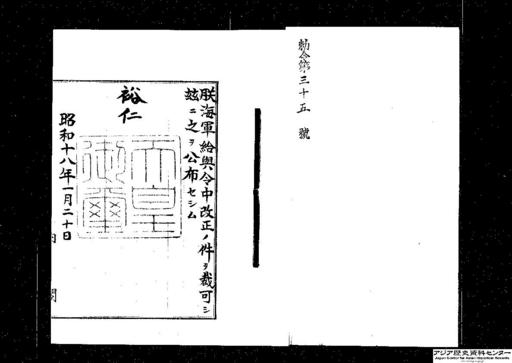 勅令第三十五號
朕海軍給與令中改正ノ件ヲ裁可シ
玆ニ之ヲ公布セシム
裕仁
天皇
御璽
昭和十八年一月二十日
内
閣
アジア歴史資料センター
Japan Center for Asian Historical Records